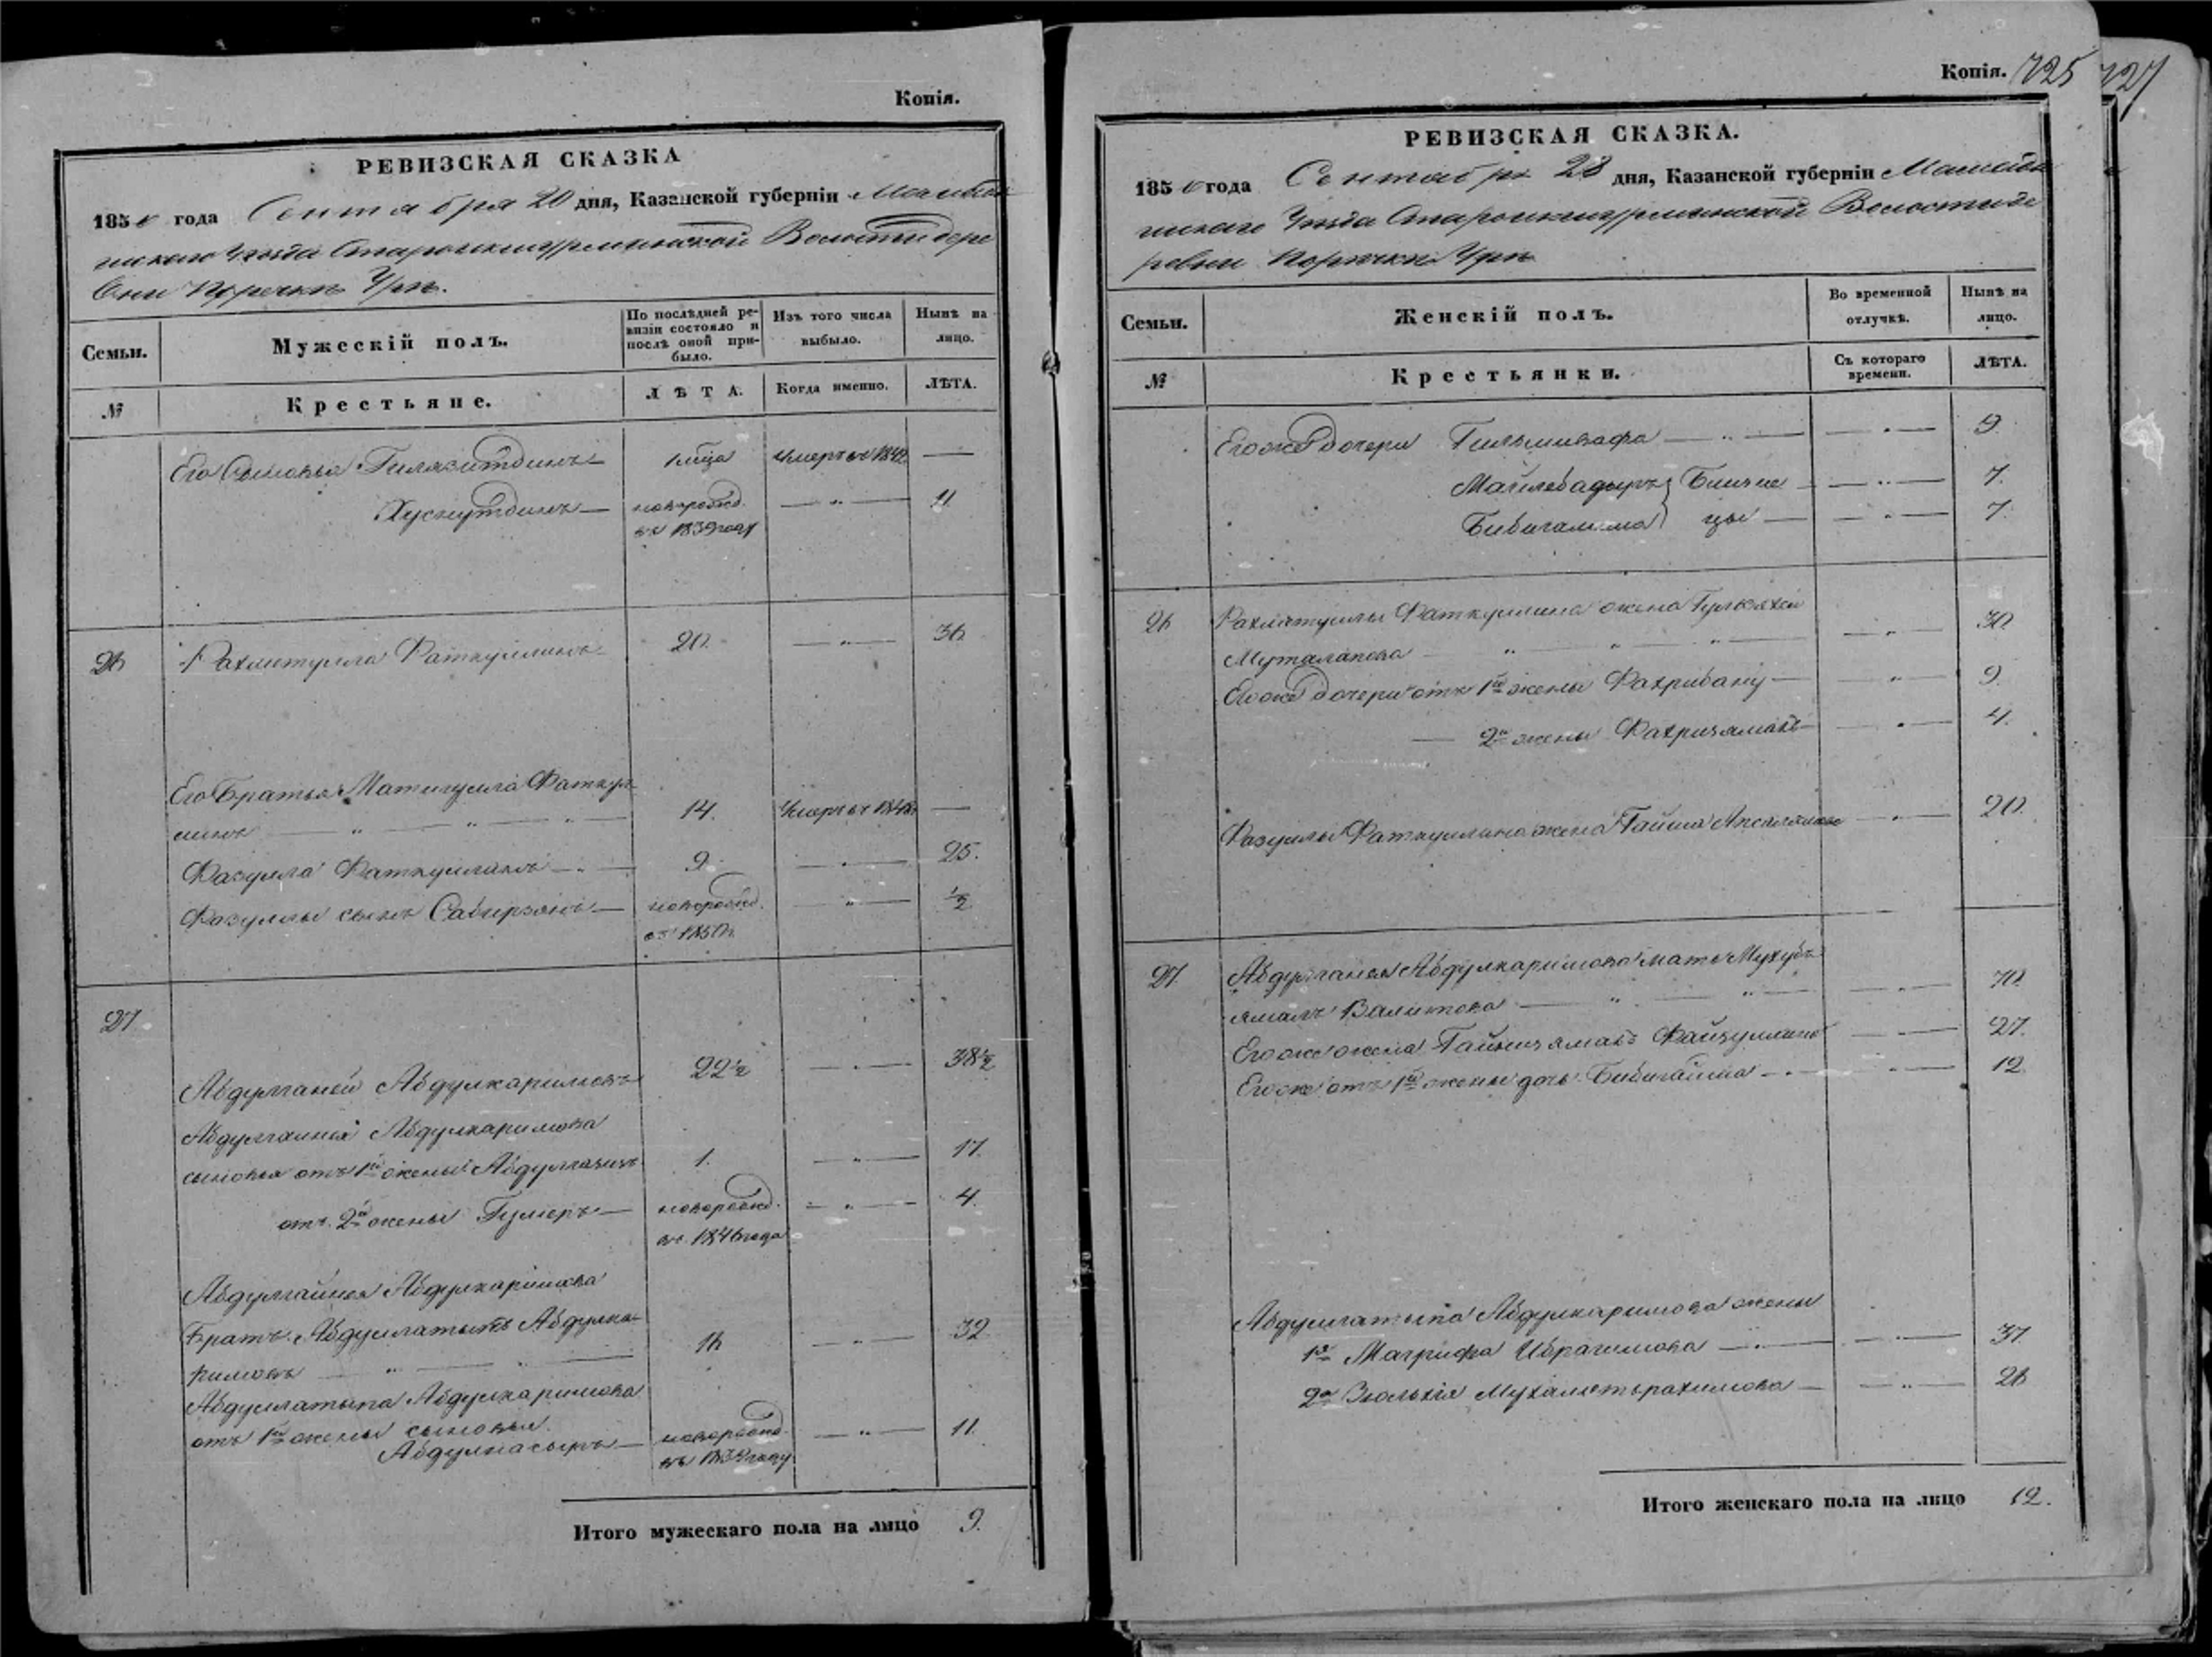 Копія.
РЕВИЗСКАЯ СКАЗКА
1850 года Сентября 20 дня, Казанской губерніи Мамадыш
скаго Уѣзда Волости дере
вни Порѣчки Уры.
Семьи.
Мужескій полъ.
По послѣдней ре-
визіи состояло и
послѣ оной при-
было.
Изъ того числа
выбыло.
Нынѣ на
лицо.
№
Крестьяне.
ЛѢТА.
Когда именно.
ЛѢТА.
Его Сыновья Гилязитдинъ — умеръ въ 1842 —
Хуснутдинъ — новорожд. — " — 11
въ 1839 году
26 Рахматулла Фаткуллинъ 20. — " — 36
Его Братья Матигулла Фаткул
линъ — " — " — " — 14. Умеръ въ —
Фазулла Фаткуллинъ — " — 9. — " — 25.
Фазуллы сынъ Сабирзянъ — новорожд. — " — ½
въ 1850 г.
27.
Абдулганей Абдулкаримовъ 22½ — " — 38½
Абдулганея Абдулкаримова
сыновья отъ 1й жены Абдулгазизъ 1. — " — 17.
отъ 2й жены Гумеръ — новорожд. — " — 4.
въ 1846 года
Абдулганея Абдулкаримова
Братъ Абдуллатыпъ Абдулка-
римовъ — " — " — 16 — " — 32
Абдуллатыпа Абдулкаримова
отъ 1й жены сыновья
Абдулнасыръ — новорожд. — " — 11.
въ 1839 году
Итого мужескаго пола на лицо 9.
Копія. 725
727
РЕВИЗСКАЯ СКАЗКА.
1850 года Сентября 28 дня, Казанской губерніи Мамадыш
скаго Уѣзда Волости де
ревни Порѣчки Уры
Семьи.
Женскій полъ.
Во временной
отлучкѣ.
Нынѣ на
лицо.
№
Крестьянки.
Съ котораго
времени.
ЛѢТА.
Его же дочери — " — — " — 9
Близне — " — 7.
Бибигалима } цы — — " — 7.
26 Рахматуллы Фаткуллина жена
Муталапова — " — " — " — — " — 30
Его же дочери отъ 1й жены Фахрибану — — " — 9
— 2й жены Фахризямалъ — — " — 4.
Фазуллы Фаткуллина жена Гайша — " — 20.
27. Абдулганея Абдулкаримова мать Мухубъ
ямалъ Валитова — " — " — — " — 70
Его же жена Файзуллина — " — 27.
Его же отъ 1й жены дочь Бибигайша — " — " — 12
Абдуллатыпа Абдулкаримова жены
1я Магрифа Ибрагимова — " — — " — 37
2я Зюльхія Мухаметьрахимова — — " — 26
Итого женскаго пола на лицо 12.